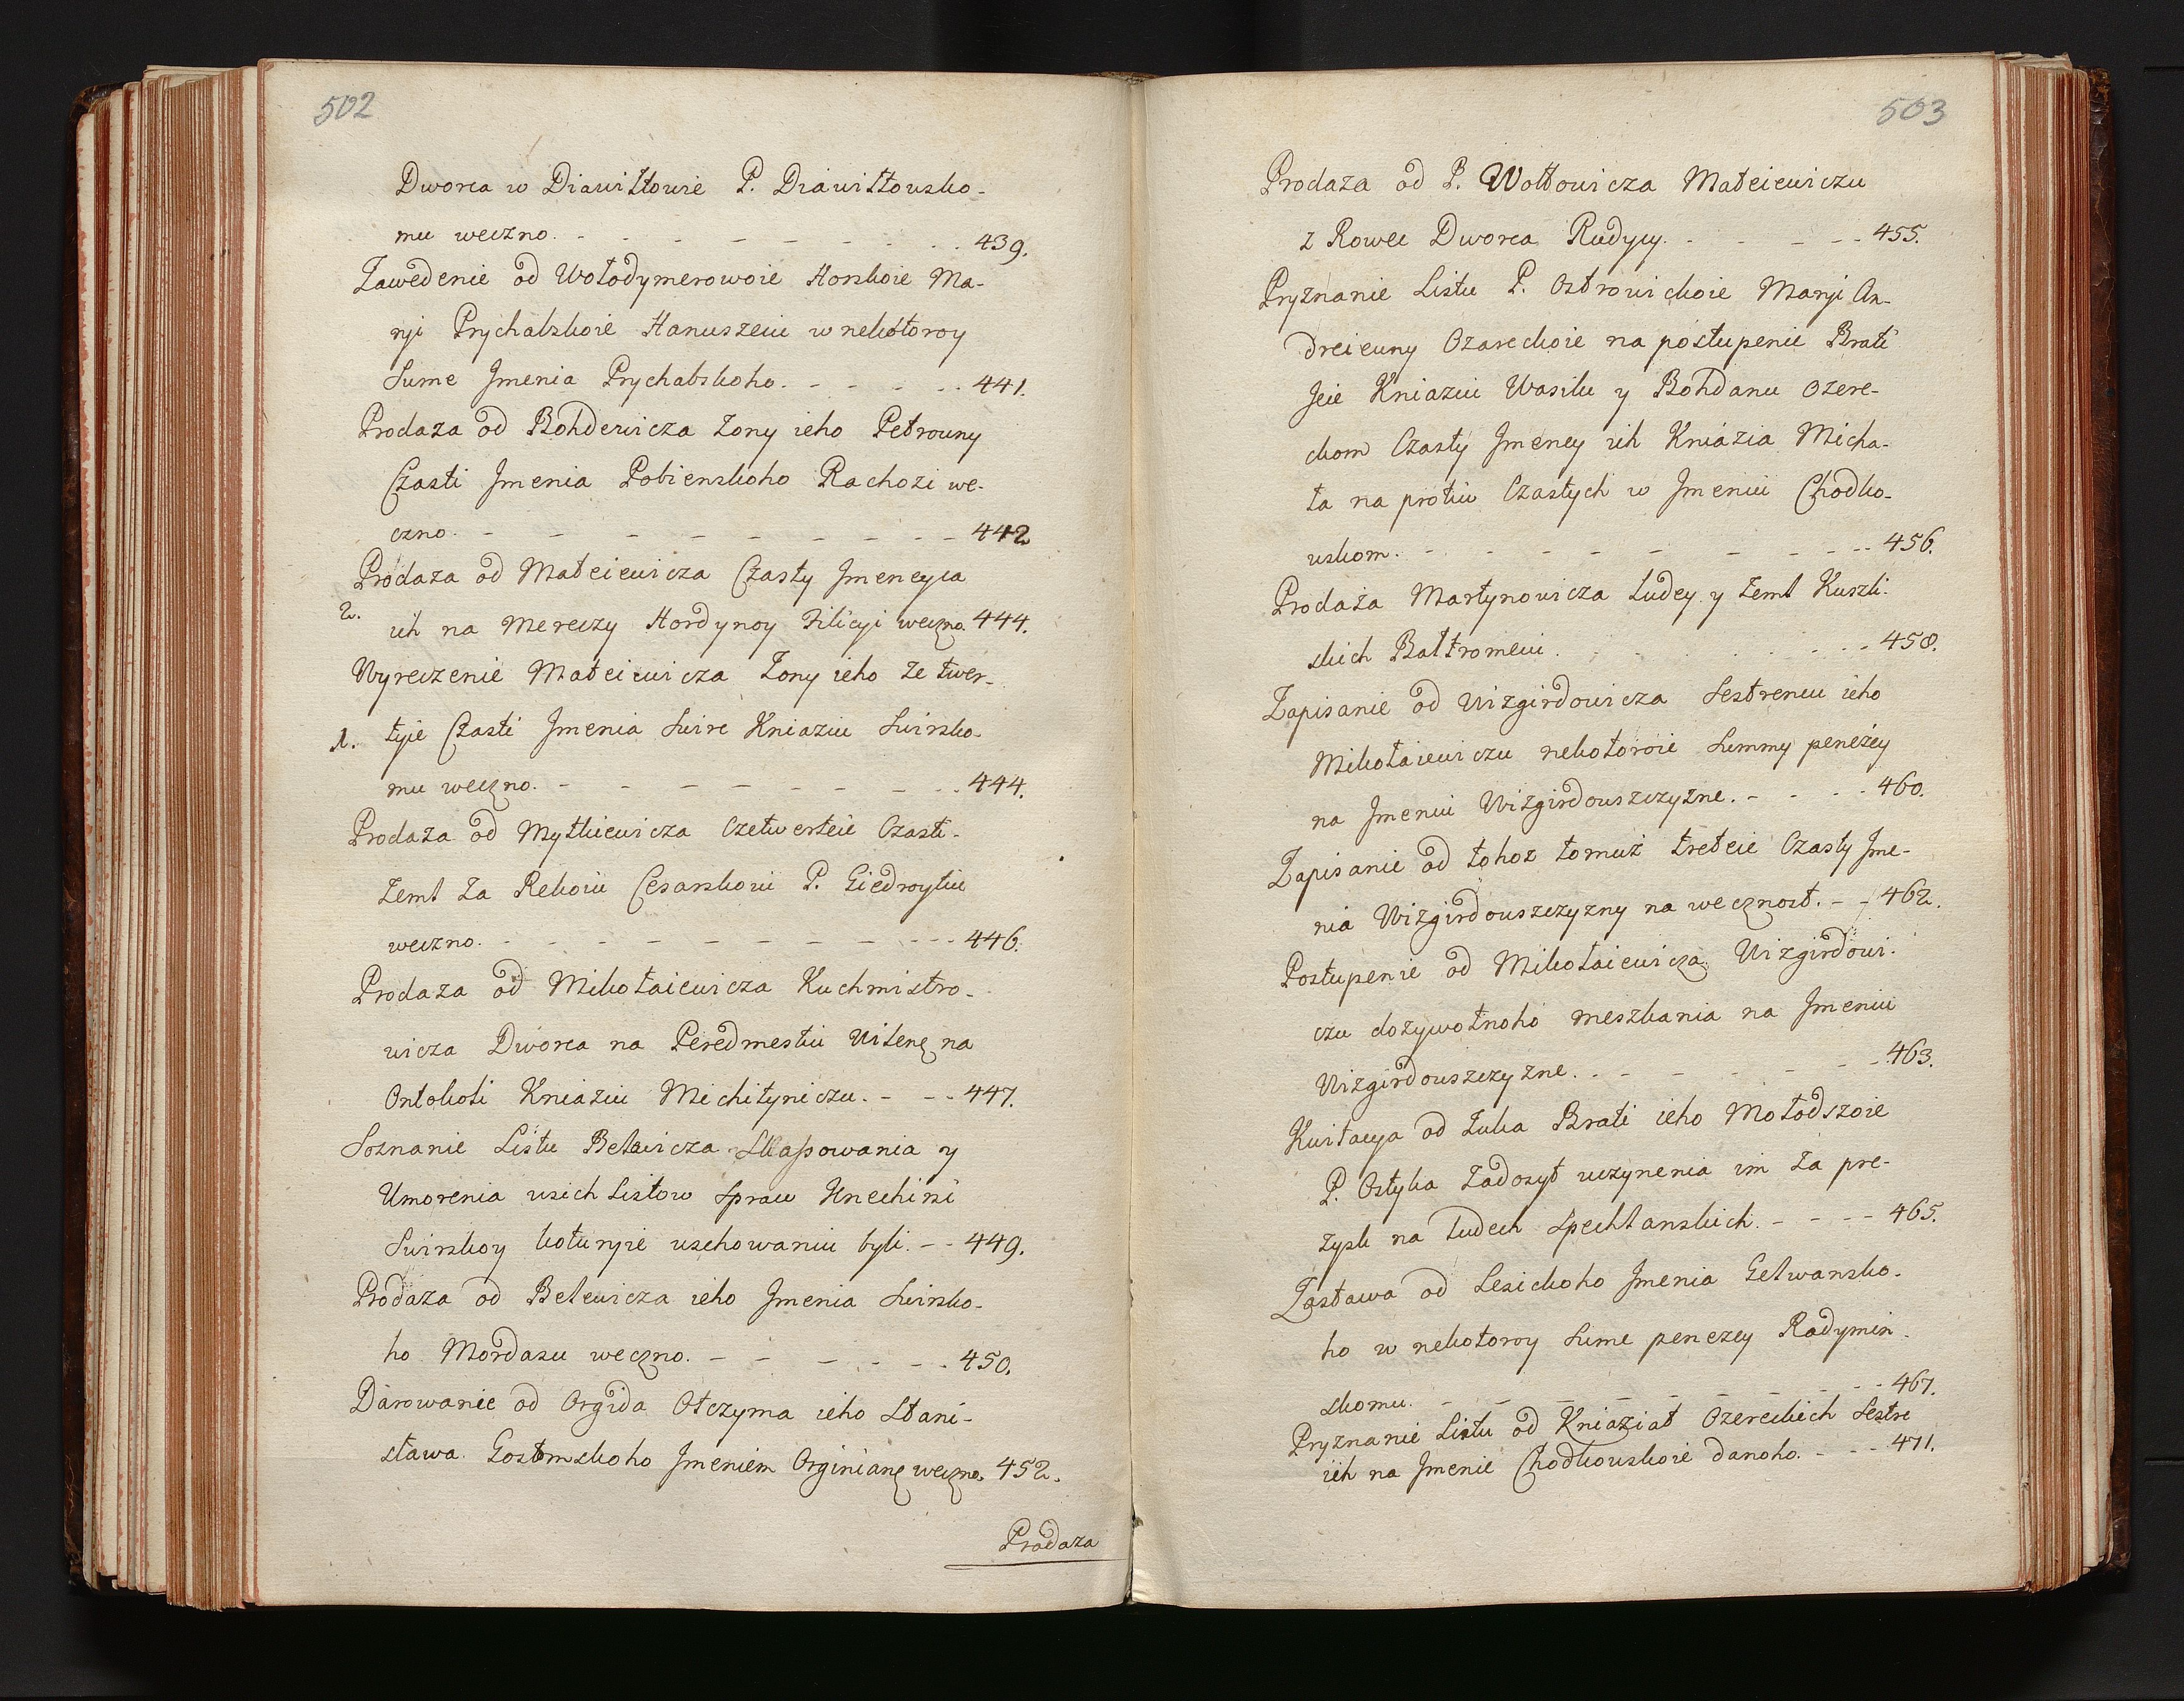 502
Dworca w Diawiltowie P. Diawiltowsko-
mu weczno. - - - - - - - - 439.
Zawedenie od Wołodymerowoie Horskoie Ma-
ryi Prychabskoie Hanuszeiu w nekotoroy
Sume Jmenia Prychabskoho. - - - - - 441.
Prodaza od Bohdewicza Zony ieho Petrowny
Czasti Jmenia Pobienskoho Rachozi we-
czno. - - - - - - - - - 442
Prodaza od Mateiewicza Czasty Jmeneyca
2. ich na Mereczy Hordynoy Filicyi weczno. 444.
Wyreczenie Mateiewicza Zony ieho Ze twer-
1. tyie Czasti Jmenia Swire Kniaziu Swirsko-
mu weczno. - - - - - - - - 444.
Prodaza od Mytkiewicza Czetwerteie Czasti-
Zeml Za Rekoiu Cesarskoiu P. Giedroytiu
weczno. - - - - - - - - - 446.
Prodaza od Mikołaiewicza Kuchmistro-
wicza Dworca na Peredmestiu Wilenę na
Ontokoli Kniaziu Michityniczu. - - - 447.
Soznanie Listu Belewicza Skassowania y
Umorenia wsich Listow Spraw Knechini
Swirskoy koturyie uschowaniu byli. - - 449.
Prodaza od Belewicza ieho Jmenia Swirsko-
ho Mordasu weczno. - - - - - - 450.
Darowanie od Orgida Otczyma ieho Stani-
sława Gostomskoho Jmeniem Orginianę weczno. 452.
Prodaza
503
Prodaza od P. Wołłowicza Mateiewiczu
z Rowec Dworca Rudycy. - - - - - 455.
Pryznanie Listu P. Ostrowickoie Maryi An-
dreiewny Ozareckoie na postupenie Brati
Jeie Kniaziu Wasilu y Bohdanu Ozere-
ckom Czasty Jmeney ich Kniazia Micha-
ła na protiw Czastych w Jmeniu Chodko-
wskom. - - - - - - - - 456.
Prodaża Martynowicza Ludey y Zeml Kuszli-
skich Baltromeiu. - - - - - 458.
Zapisanie od Wizgirdowicza Sestrencu ieho
Mikołaiewiczu nekotoroie Summy penežey
na Jmeniu Wizgirdowszczyzne. - - - - 460.
Zapisanie od tohoz tomuż treteie Czasty Jme-
nia Wizgirdowszczyzny na wecznost. - - 462.
Postupenie od Mikołaiewicza Wizgirdowi-
czu dozywotnoho meszkania na Jmeniu
Wizgirdowszczyzne. - - - - - - 463.
Kwitacya od Zuka Brati ieho Mołodszoie
P. Ostyka Zadosyt uczynenia im Za pre-
zysk na Ludech Spechlanskich. - - - - 465.
Zastawa od Lesickoho Jmenia Gelwansko-
ho w nekotoroy Sume penezey Radymin-
skomu. - - - - - - - - 467.
Pryznanie Listu od Kniaziat Ozereckich Sestre
iich na Jmenie Chodkowskoie danoho. - - - 471.